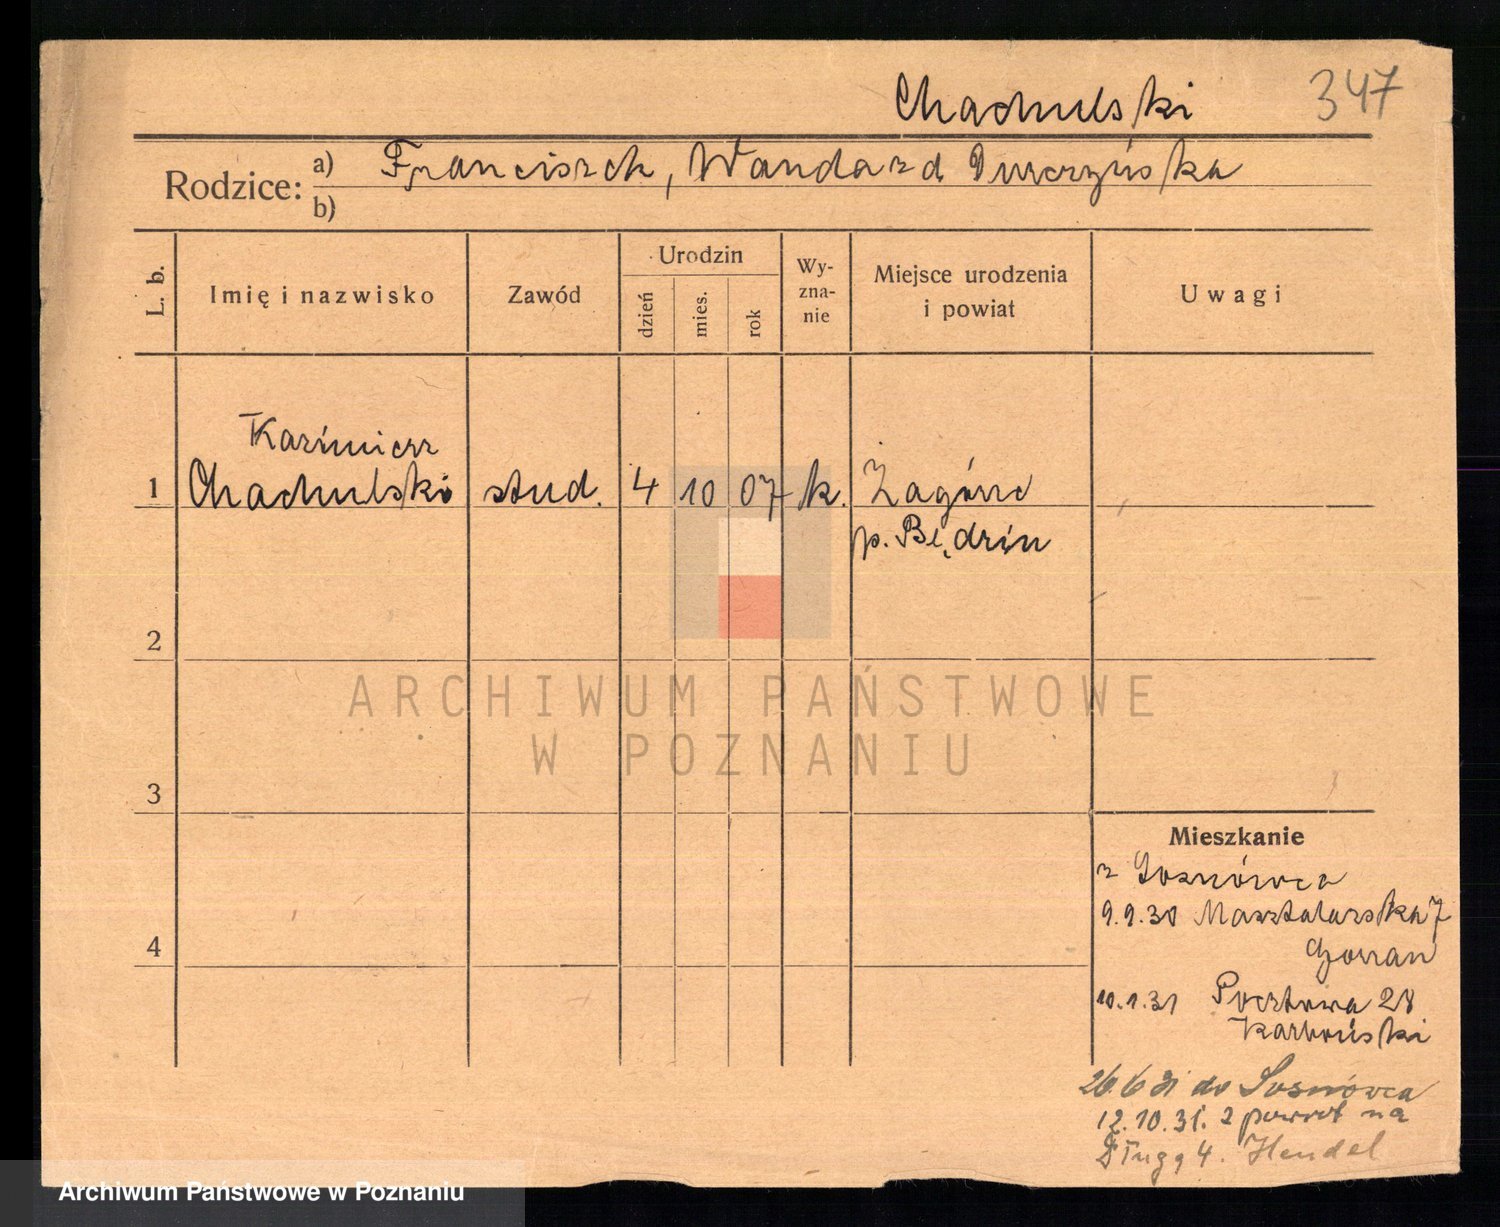 Chachulski 347
Rodzice: a) Franciszek, Wanda z d.
b)
L. b.
Imię i nazwisko
Zawód
Urodzin
dzień
mies.
rok
Wy-
zna-
nie
Miejsce urodzenia
i powiat
Uwagi
Kazimierz
1 Chachulski stud. 4 10 07 k. Zagórze
p. Będzin
2
3
4
Mieszkanie
z Sosnówca
9.9.30 Masztalarska 7
10.1.31 Pocztowa 28
Karboński
26.6 31 do Sosnówca
12.10.31. z powrot na
Długą 4. Hendel
ARCHIWUM PAŃSTWOWE
W POZNANIU
Archiwum Państwowe w Poznaniu